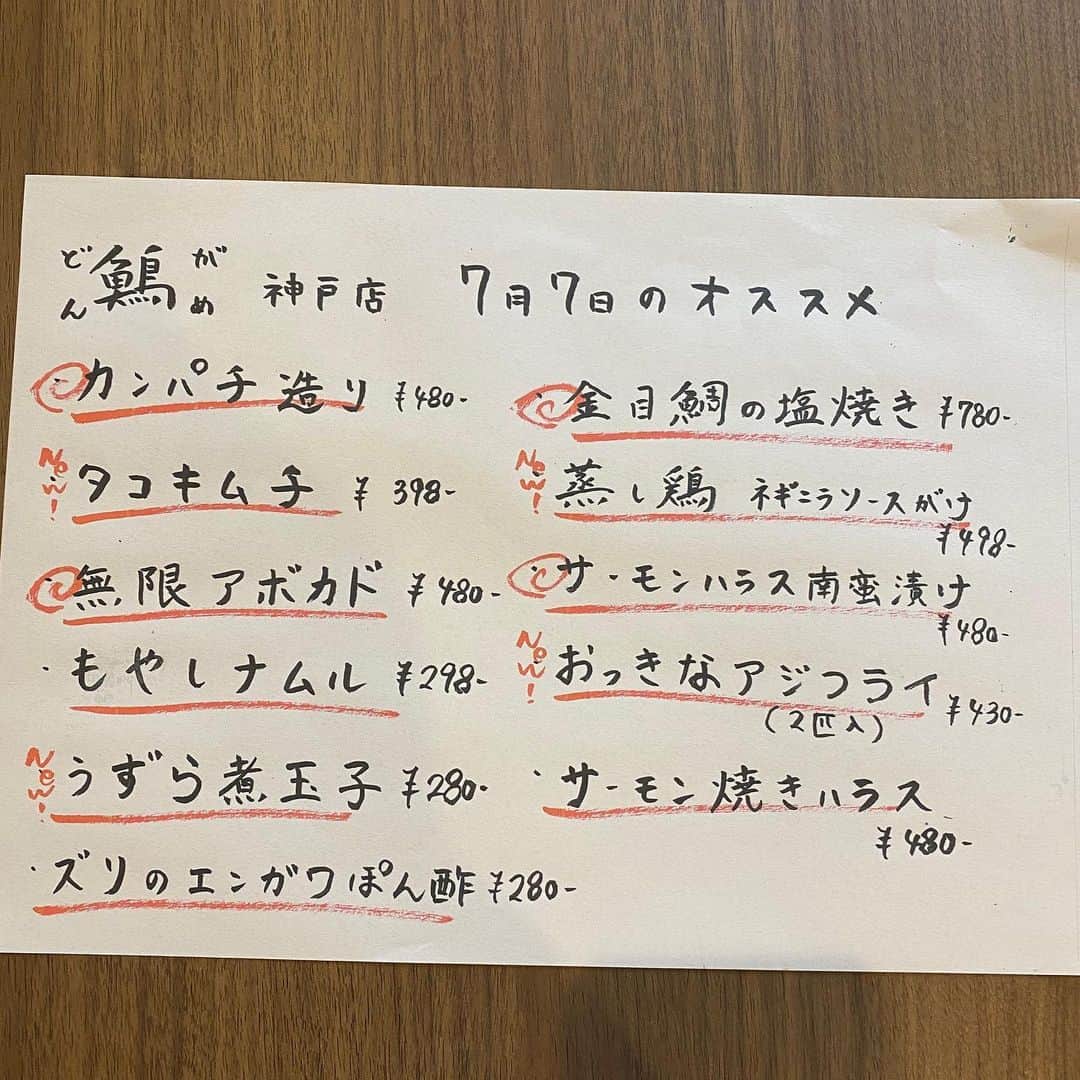 どん鶳がめ 神戸店 7月7日のオススメ
・カンパチ造り ¥480-
New! タコキムチ ¥398-
・無限アボカド ¥480-
・もやしナムル ¥298-
New! うずら煮玉子 ¥280-
・ズリのエンガワぽん酢 ¥280-
・金目鯛の塩焼き ¥780-
New! 蒸し鶏 ネギニラソースがけ
¥498-
・サーモンハラス南蛮漬け
¥480-
New! おっきなアジフライ ¥430-
(2匹入)
・サーモン焼きハラス
¥480-